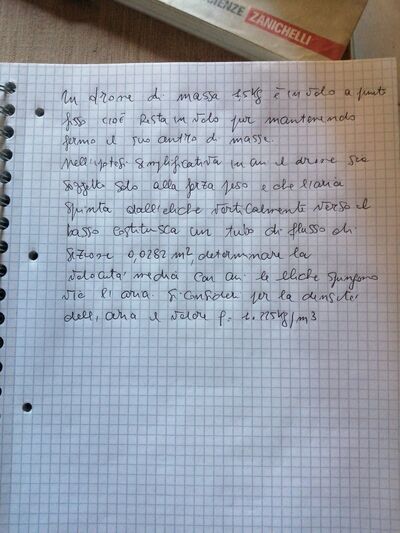 SCIENZE ZANICHELLI
Un drone di massa 1,5 Kg è in volo a punto
fisso cioè resta in volo pur mantenendo
fermo il suo centro di massa.
Nell'ipotesi semplificativa in cui il drone sia
soggetto solo alla forza peso e che l'aria
spinta dall'eliche verticalmente verso il
basso costituisca un tubo di flusso di
sezione 0,0282 m², determinare la
velocità media con cui le eliche spingono
via l'aria. Si consideri per la densità
dell'aria il valore ρ= 1.225 kg/m3